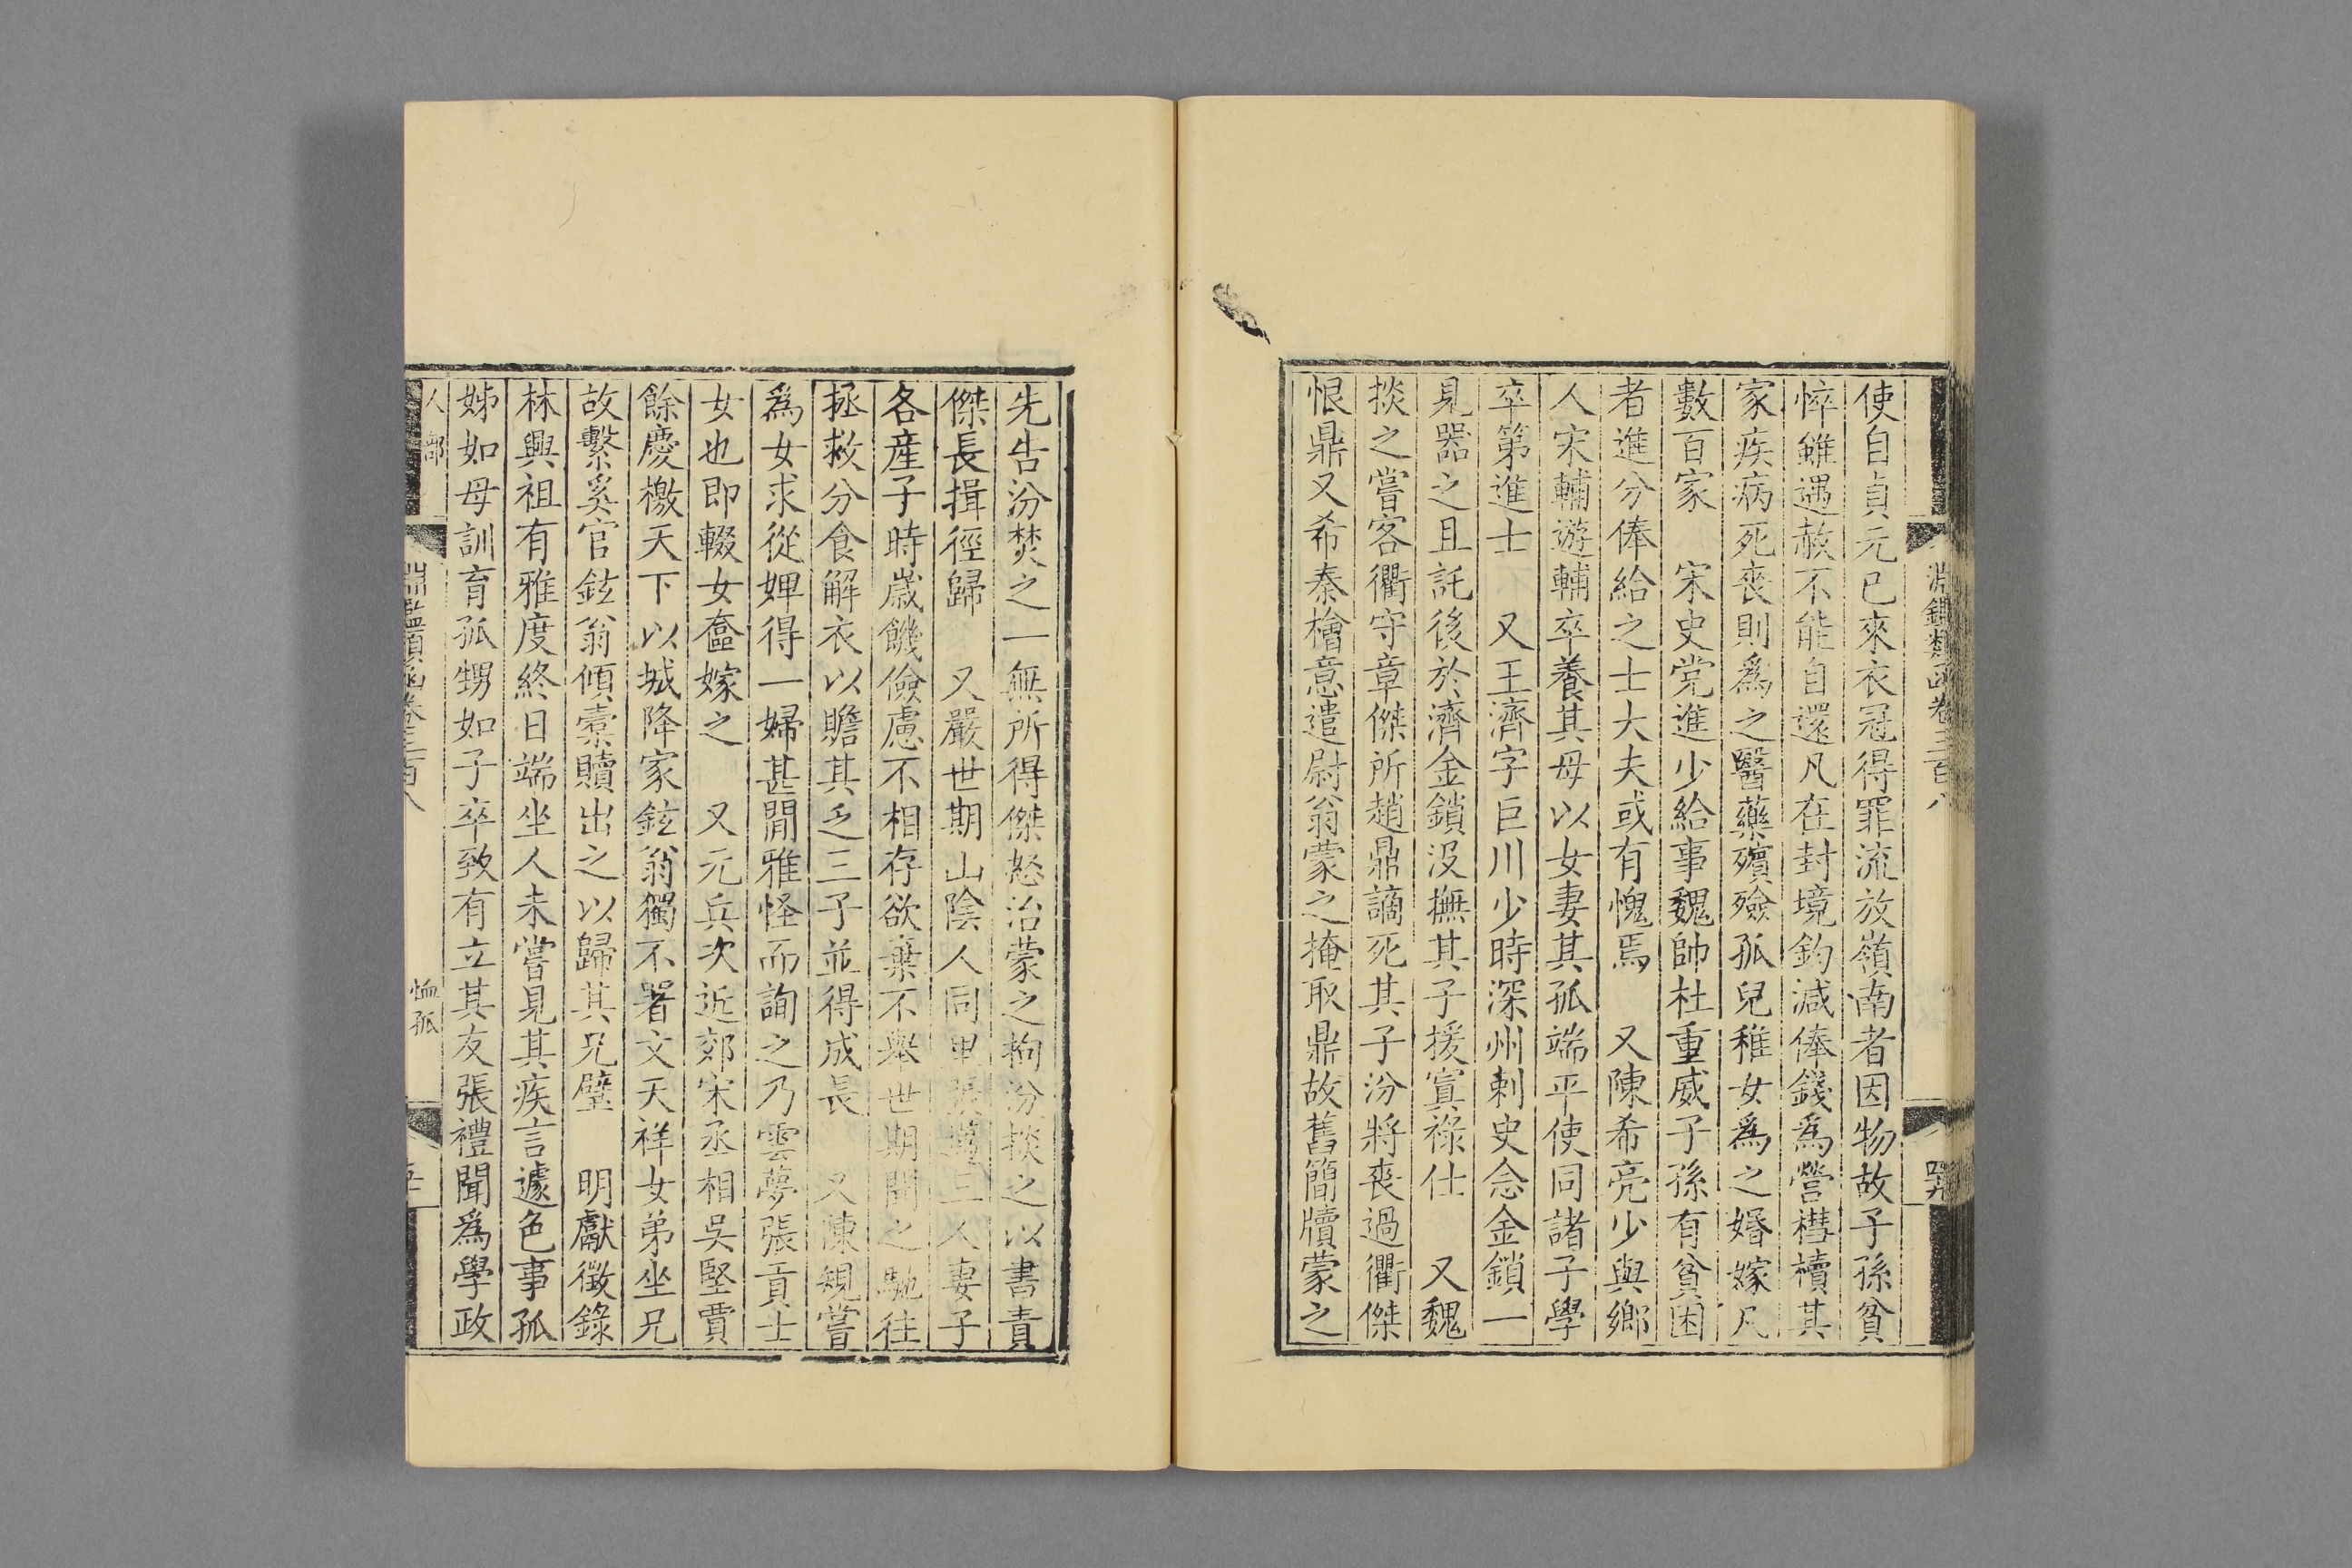 淵鑑類函卷三百八
使自貞元已來衣冠得罪流放嶺南者因物故子孫貧
悴雖遇赦不能自還凡在封境鈞減俸錢爲營槥櫝其
家疾病死喪則爲之醫藥殯殮孤兒稚女爲之婚嫁凡
數百家　宋史党進少給事魏帥杜重威子孫有貧困
者進分俸給之士大夫或有愧焉　又陳希亮少與鄉
人宋輔遊輔卒養其母以女妻其孤端平使同諸子學
卒第進士　又王濟字巨川少時深州刺史念金鎖一
見器之且託後於濟金鎖没撫其子援寘祿仕　又魏
掞之嘗客衢守章傑所趙鼎謫死其子汾將喪過衢傑
恨鼎又希秦檜意遣尉翁蒙之掩取鼎故舊簡牘蒙之
先告汾焚之一無所得傑怒治蒙之拘汾掞之以書責
傑長揖徑歸　又嚴世期山陰人同里張邁三人妻子
各產子時歲饑儉慮不相存欲棄不舉世期聞之馳往
拯救分食解衣以贍其乏三子並得成長　又陳規嘗
爲女求從婢得一婦甚閒雅怪而詢之乃雲夢張貢士
女也即輟女奩嫁之　又元兵次近郊宋丞相吳堅賈
餘慶檄天下以城降家鉉翁獨不署文天祥女弟坐兄
故繫奚官鉉翁傾橐贖出之以歸其兄璧　明獻徵錄
林興祖有雅度終日端坐人未嘗見其疾言遽色事孤
姊如母訓育孤甥如子卒致有立其友張禮聞爲學政
人部
淵鑑類函卷三百八
恤孤